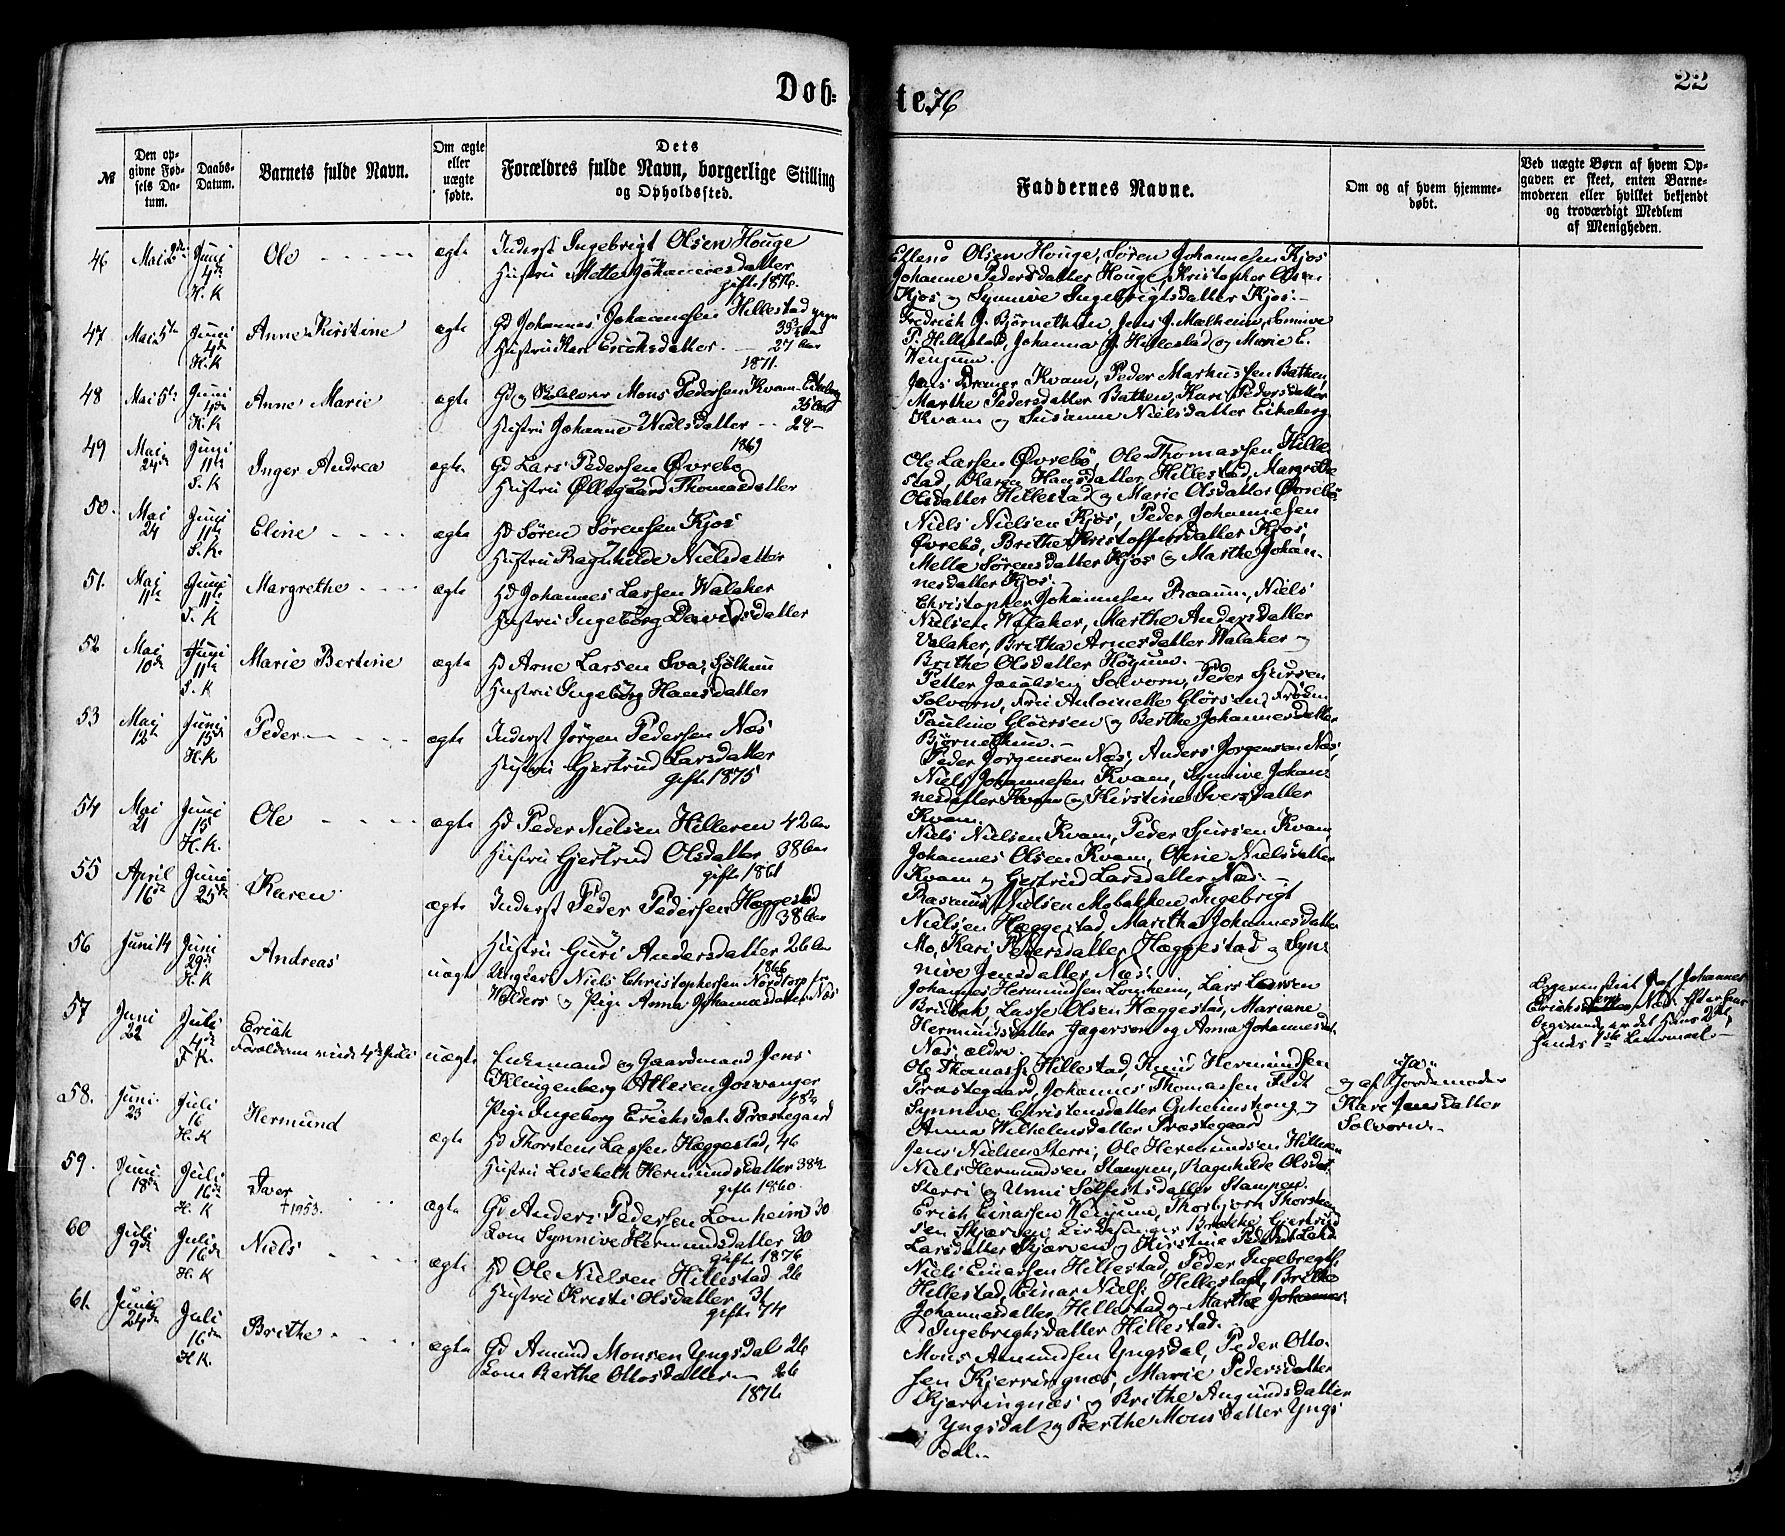 Døb- te 76
22
№
Den opgivne Fødsels Datum.
Daabs-Datum.
Barnets fulde Navn.
Om ægte eller uægte fødte.
Dets
Forældres fulde Navn, borgerlige Stilling
og Opholdssted.
Faddernes Navne.
Om og af hvem hjemmedøbt.
Ved uægte Børn af hvem Opgaven er skeet, enten Barnemoderen eller hvilket bekjendt og troværdigt Medlem af Menigheden.
46 Mai Juni 4de H.K Ole ægte Inderst Ingebrigt Olsen Houge
Hustru Mette Johannesdatter
gifte 1876.
Olsen Houge, Søren Johannesen Kjos
Johanne Pedersdatter Houge, Kristopher Olsen
Kjos og Synneve Ingebrigtsdatter Kjos.
47 Mai 5te Juni 4de H.K Anne Kirstine ægte Gd Johannes Johannesen Hillestad
Hustru Kari Erichsdatter. 27 Aar
1871.
Fredrich J. Bjørnetun, Jens J. Melheim,
P. Hillestad, Johanna J. Hillestad og Marie E.
Vengum.
48 Mai 5te Juni 4de H.K Anne Marie ægte Gd og Mons Pedersen Kvam
Hustru Johanne Nielsdatter 29
1869
Jens Kvam, Peder Markussen Bathen,
Marthe Pedersdatter Bathen, Kari Pedersdatter
Kvam og Susanne Nielsdatter Eikeberg
49 Mai 24de Juni 11te S.K Inger Andrea ægte Gd Lars Pedersen Øvrebø
Hustru Øllegaard Thomasdatter
Ole Larsen Øvrebø, Ole Thomassen Hille
stad, Karen Hansdatter Hillestad, Margrethe
Olsdatter Hillestad og Marie Olsdatter Øvrebø
50. Mai 24 Juni 11te S.K. Eline ægte Hd Søren Sørensen Kjos
Hustru Ragnhilde Nielsdatter
Niels Nielsen Kjos, Peder Johannesen
Øvrebø, Brithe Kristoffersdatter Kjos,
Mette Sørensdatter Kjos og Marthe Johan-
nesdatter Kjos.
51. Mai 11te Juni 11te S.K Margrethe ægte Hd Johannes Larsen Walaker
Hustru Ingeborg Davidsdatter
Christopher Johannesen Raaum, Niels
Nielsen Walaker, Marthe Andersdatter
Valaker, Britha Arnesdatter Walaker og
Brithe Olsdatter Høgum.
52 Mai 10de Juni 11te S.K Marie Bertine ægte Hd Arne Larsen Sva,
Hustru Ingeborg Hansdatter
Petter Jacobsen Solvorn, Peder Sjursen
Solvorn, Fru Antoinette Gløersen, Frøken
Pauline Gløersen og Berthe Johannesdatter
53 Mai 12te Juni 15de H.K Peder ægte Inderst Jørgen Pedersen Næs
Hustru Gjertrud Larsdatter
gifte 1875
Peder Jørgensen Næs, Anders Jørgensen Næs,
Niels Johannesen Kvam, Synnive Johan-
nesdatter Kvam og Kirstine Iversdatter
Kvam.
54 Mai 21 Juni 15 H.K. Ole ægte Hd Peder Nielsen Hilleren 42 Aar
Hustru Gjertrud Olsdatter 38 Aar
gifte 1861
Niels Nielsen Kvam, Peder Sjursen Kvam
Johannes Olsen Kvam, Nielsdatter
Kvam og Gjertrud Larsdatter Næs.
55 April 16de Juni 25de Karen ægte Inderst Peder Pedersen Hæggestad
38 Aar
Hustru Guri Andersdatter 26 Aar
1866
Rasmus Nielsen Mobakken, Ingebrigt
Nielsen Hæggestad, Maritha Johannesdatter
Mo, Kari Pedersdatter Hæggestad og Syn-
nive Jensdatter Næs.
56 Juni 14 Juni 29de H.K Andreas uægte Ungkarl Niels Christophersen Nordtorp fra
Walders og Pige Anna Johannesdatter Næs
Johannes Hermundsen Lomheim, Lars Larsen
Lasse Olsen Hæggestad, Mariane
Hermundsdatter og Anna Johannesdat.
Næs ældre.
Opgaven skeet af Johannes
Erichsen Næs.
57 Juni 22 Juli 4de F.K. Erich
Forældrene viede 4de Juli
uægte Enkemand og Gaardmand Jens
Klingenberg Allesen Josvanger
Pige Ingeborg Erichsdat. Præstegaard
Ole Thomass. Hillestad, Knud Hermundsen
Præstegaard, Johannes Thomassen Feet
Synnive Christensdatter og
Anna Wilhelmsdatter Præstegaard
"Ja"
og af Jordemoder
Kari Jensdatter
Solvorn.
58. Juni 23 Juli 16 H.K. Hermund ægte Hd Thorsten Lassen Hæggestad, 46
Hustru Lisebeth Hermundsdatter 38
gifte 1860.
Jens Nielsen Sterri, Ole Hermundsen Hilleren
Niels Hermundsen Stampen, Ragnhilde Olsdat.
Sterri og Unni Sølfestsdatter Stampen.
59. Juni 18de Juli 16de H.K Iver
†1953. ægte Gd Anders Pedersen Lomheim 30
Kone Synnive Hermundsdatter 30
gifte 1876
Erich Einarsen Vengum, Thorbjørn Thorsten-
sen Skjørven, Gjertrud
Larsdatter Skjerven og Kirstine
60 Juli 9de Juli 16de H.K Niels ægte Hd Ole Nielsen Hillestad 26
Hustru Kristi Olsdatter 31
gifte 74
Niels Einarsen Hillestad, Peder Ingebregts.
Hillestad, Einar Niels. Hillestad, Brithe
Johannesdatter Hillestad og Marthe
Ingebrigtsdatter Hillestad.
61. Juni 24de Juli 16de H.K. Brithe ægte Gd Amund Monsen Yngsdal 26
Kone Berthe Ottosdatter 26
1876
Mons Amundsen Yngsdal, Peder Otto-
sen Kjerringnæs, Marie Pedersdatter
Kjærringnæs og Brithe Amundsdatter
Yngsdal og Berthe Monsdatter Yngs
dal.